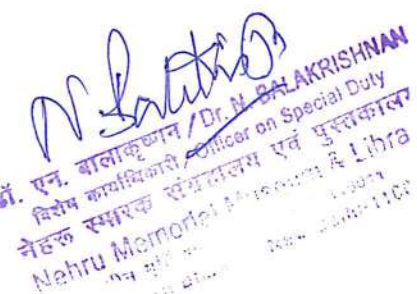 N. Balakrishnan
डॉ. एन. बालाकृष्णन / Dr. N. BALAKRISHNAN
विशेष कार्याधिकारी / Officer on Special Duty
नेहरू स्मारक संग्रहालय एवं पुस्तकालय
Nehru Memorial Museum & Libra